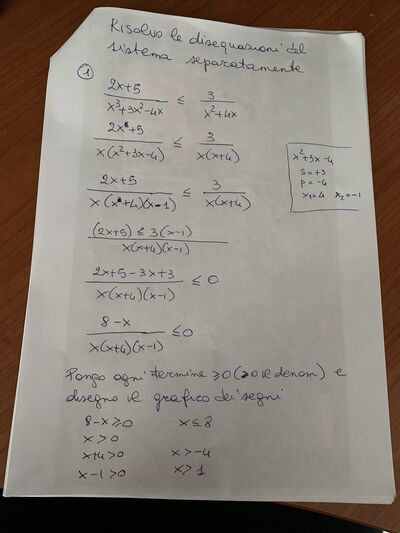 Risolvo le disequazioni del
sistema separatamente
①
2x+5 / x³+3x²-4x ≤ 3 / x²+4x
2x+5 / x(x²+3x-4) ≤ 3 / x(x+4)
x²+3x-4
S=+3
P=-4
x₁=4 x₂=-1
2x+5 / x(x+4)(x-1) ≤ 3 / x(x+4)
(2x+5) ≤ 3(x-1) / x(x+4)(x-1)
2x+5-3x+3 / x(x+4)(x-1) ≤ 0
8-x / x(x+4)(x-1) ≤ 0
Pongo ogni termine ≥0 (>0 il denom) e
disegno il grafico dei segni
8-x≥0 x≤8
x>0
x+4>0 x>-4
x-1>0 x>1